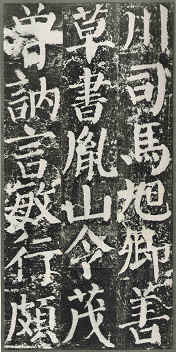 川司馬旭卿善
草書胤山令茂
曾訥言敏行頗